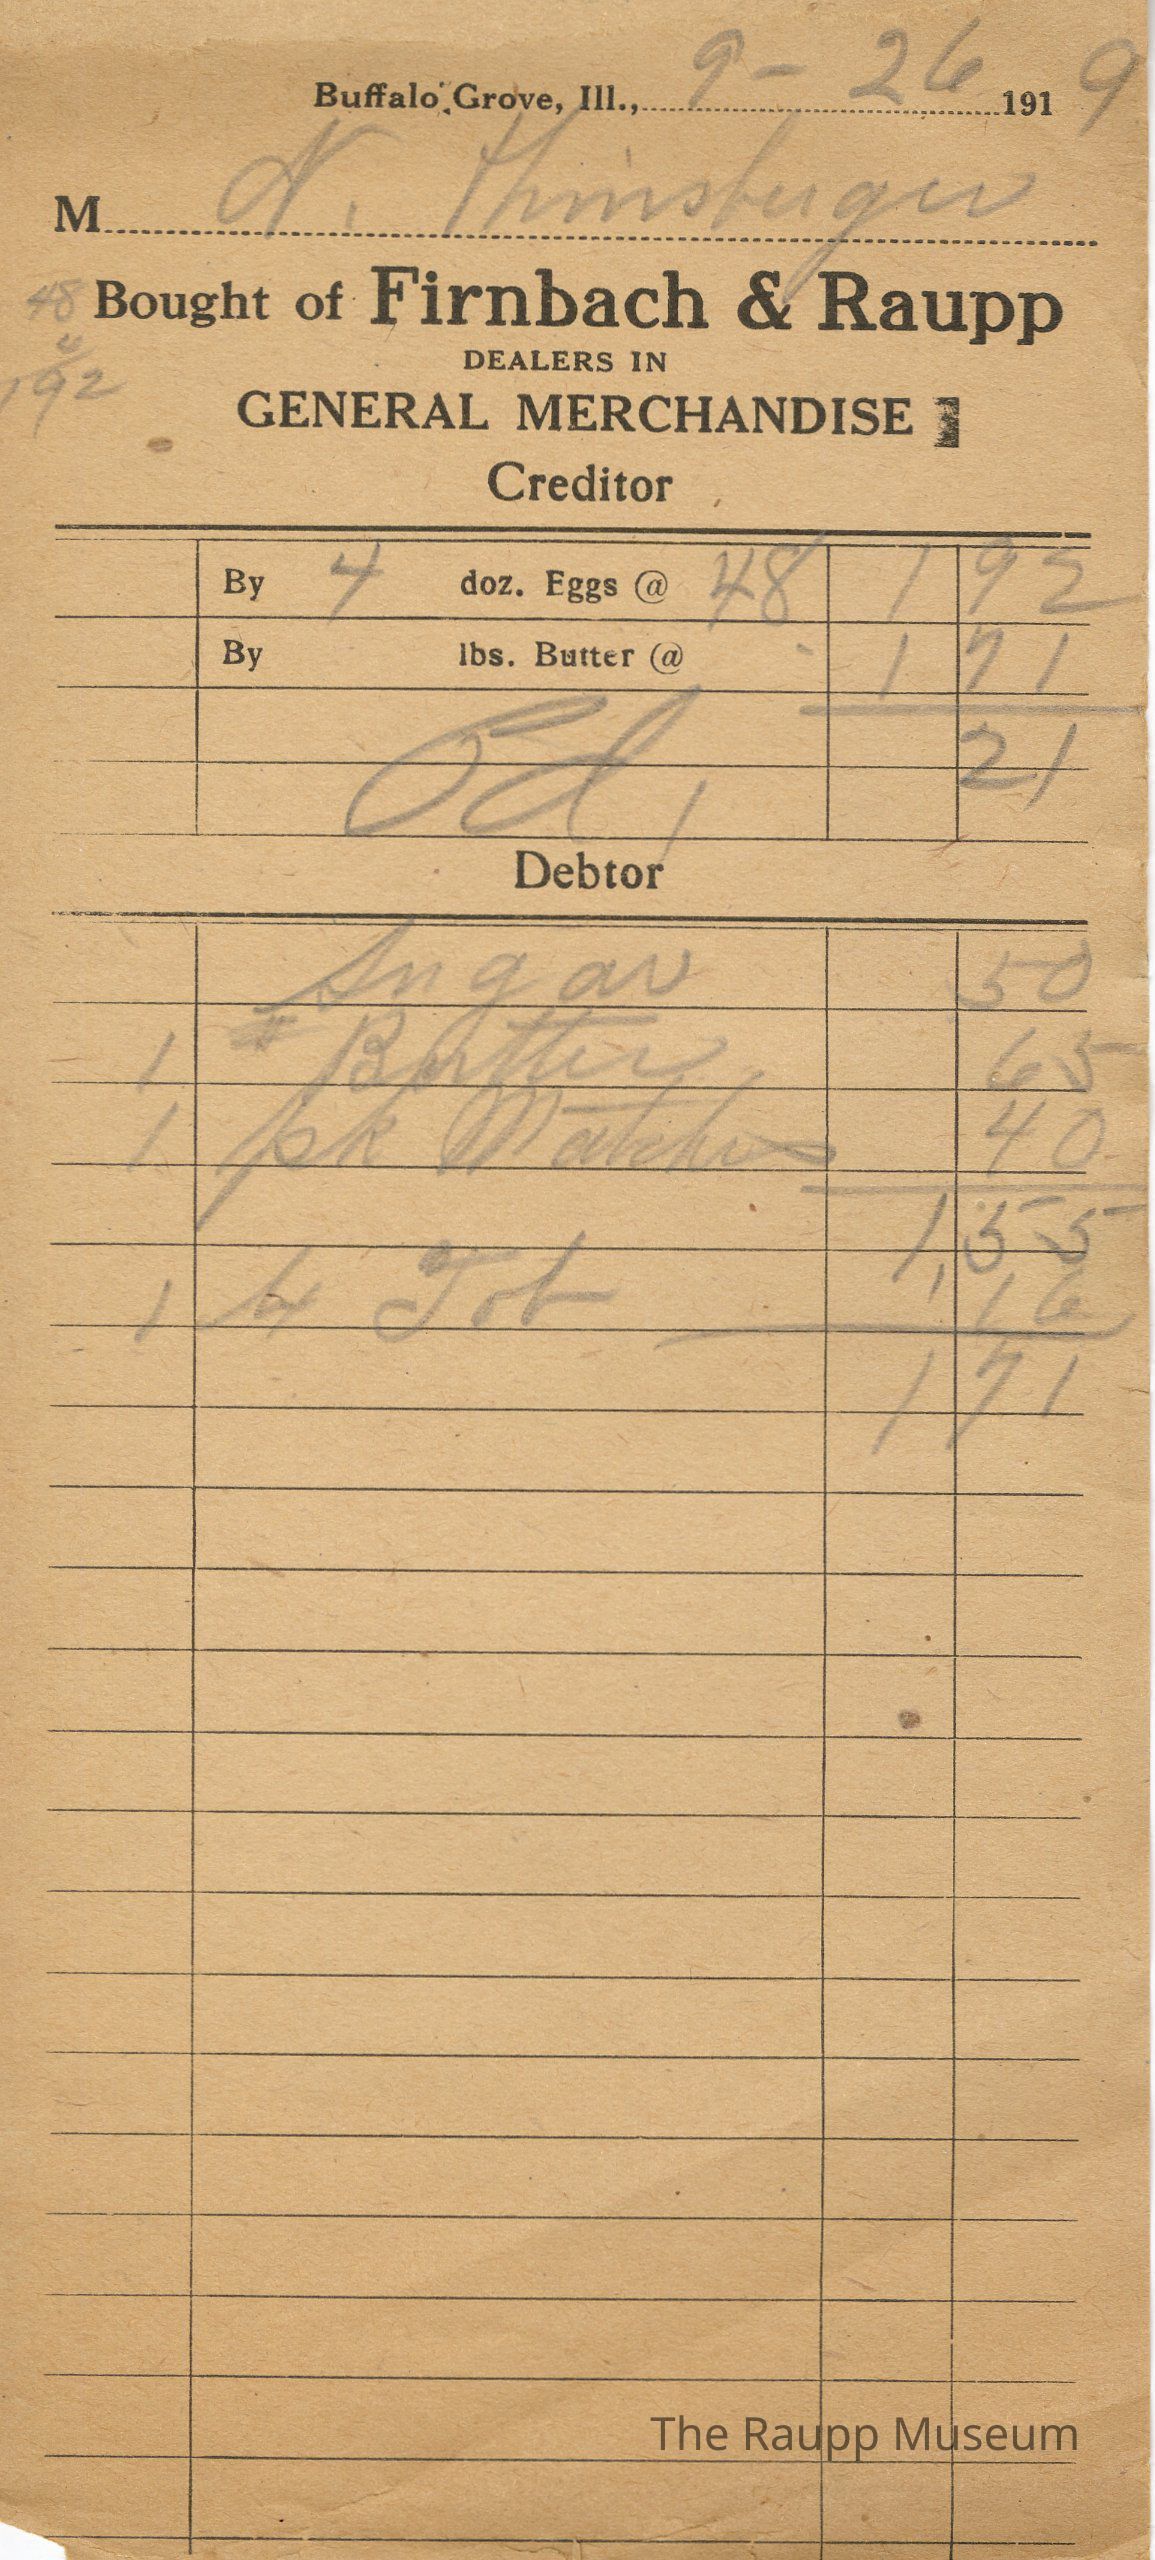 Buffalo Grove, Ill., 9-26 1919
M N. Hinsberger
48 Bought of Firnbach & Raupp
4
DEALERS IN
192
GENERAL MERCHANDISE
Creditor
By 4 doz. Eggs @ 48 1 92
By lbs. Butter @ 1 71
21
Pd,
Debtor
Sugar 50
1 # Butter 65
1 pk Matches 40
1,55
1 Tob 16
1 71
The Raupp Museum